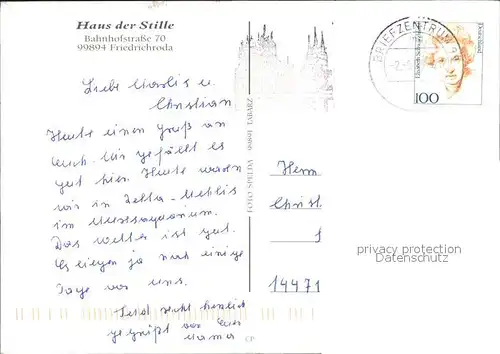 Haus der Stille
Bahnhofstraße 70
99894 Friedrichroda
Liebe Marlis u.
Christian.
Heute einen Gruß an
Euch. Mir gefällt es
gut hier. Heute waren
wir in Zella-Mehlis
im Meeresaquarium.
Das Wetter ist gut.
Es liegen ja noch einige
Tage vor uns.
Seid recht herzlich
gegrüßt von Eurer
Mama
FOTO SPELDA 99891 TABARZ
CP
BRIEFZENTRUM 99
Deutschland
100
Herrn
Christ
14471
privacy protection
Datenschutz